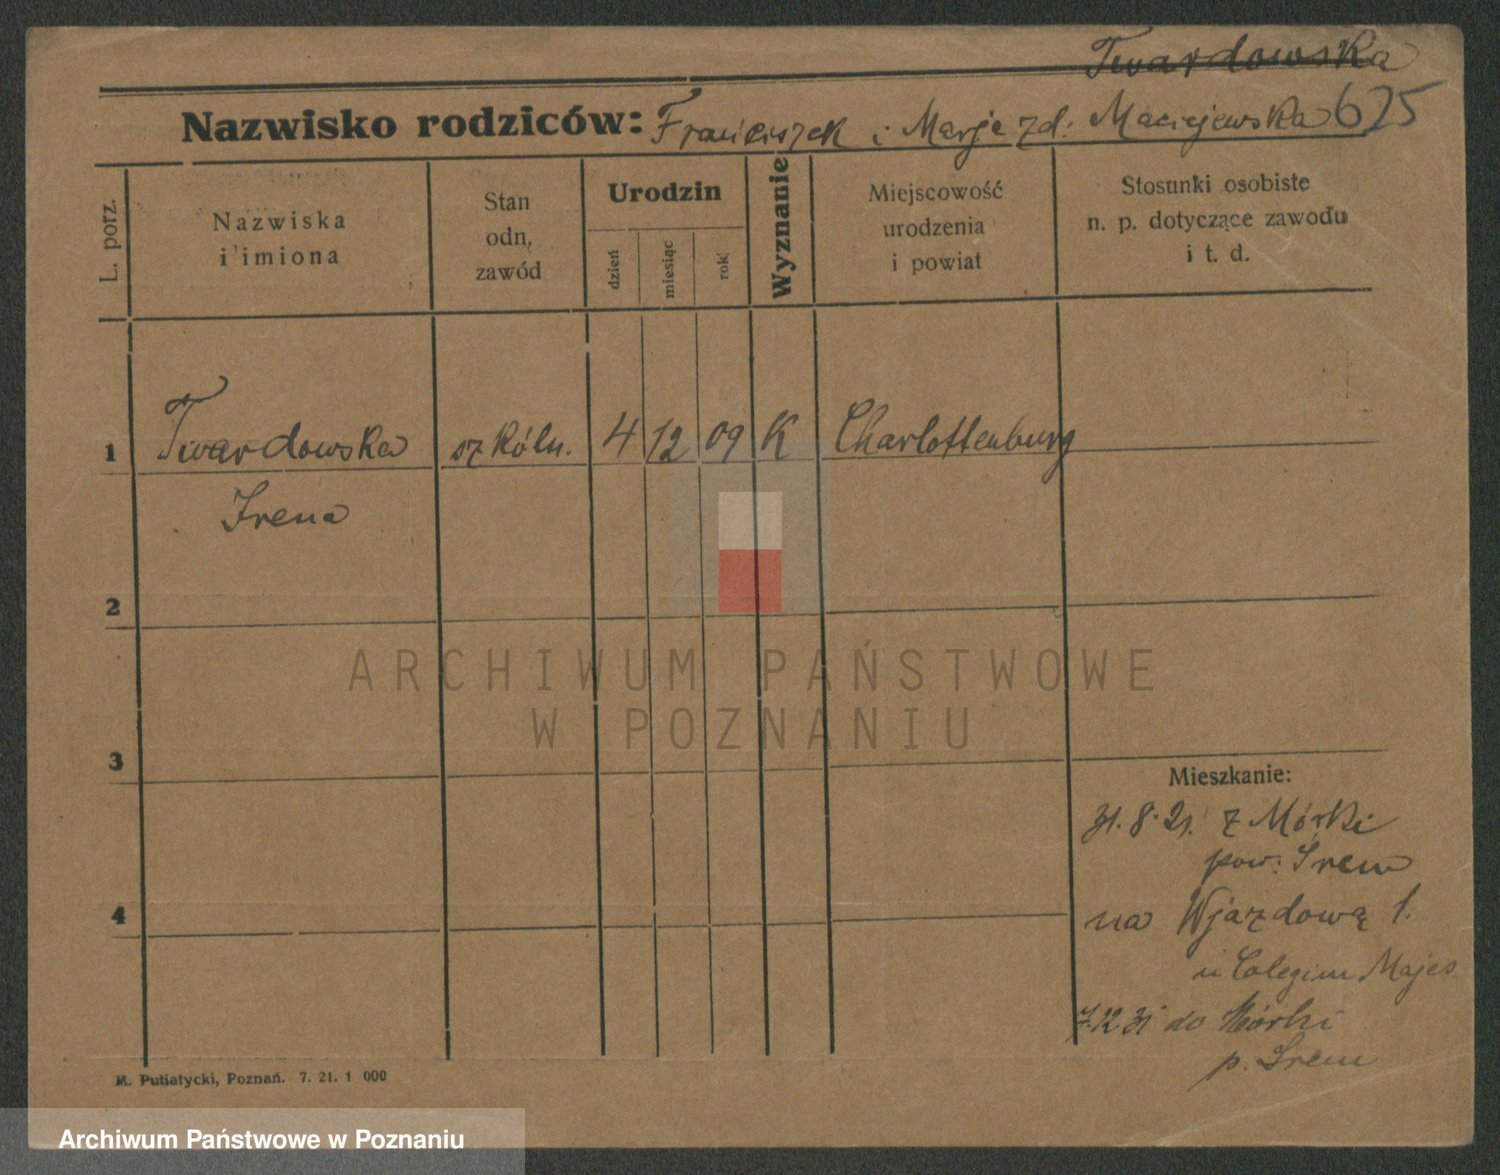 Twardowska
Nazwisko rodziców: Franciszek i Marje zd: Maciejewska 625
L. porz.
Nazwiska
i imiona
Stan
odn.
zawód
Urodzin
dzień
miesiąc
rok
Wyznanie
Miejscowość
urodzenia
i powiat
Stosunki osobiste
n. p. dotyczące zawodu
i t. d.
1 Twardowska szkóln. 4 12 09 K Charlottenburg
Irena
2
3
4
Mieszkanie:
31. 8. 21. z Mórki
pow: Śrem
na Wjazdową 1.
u Colegium Majes
7.12 31 do Mórki
p. Śrem
M. Putiatycki, Poznań. 7. 21. 1 000
ARCHIWUM PAŃSTWOWE
W POZNANIU
Archiwum Państwowe w Poznaniu